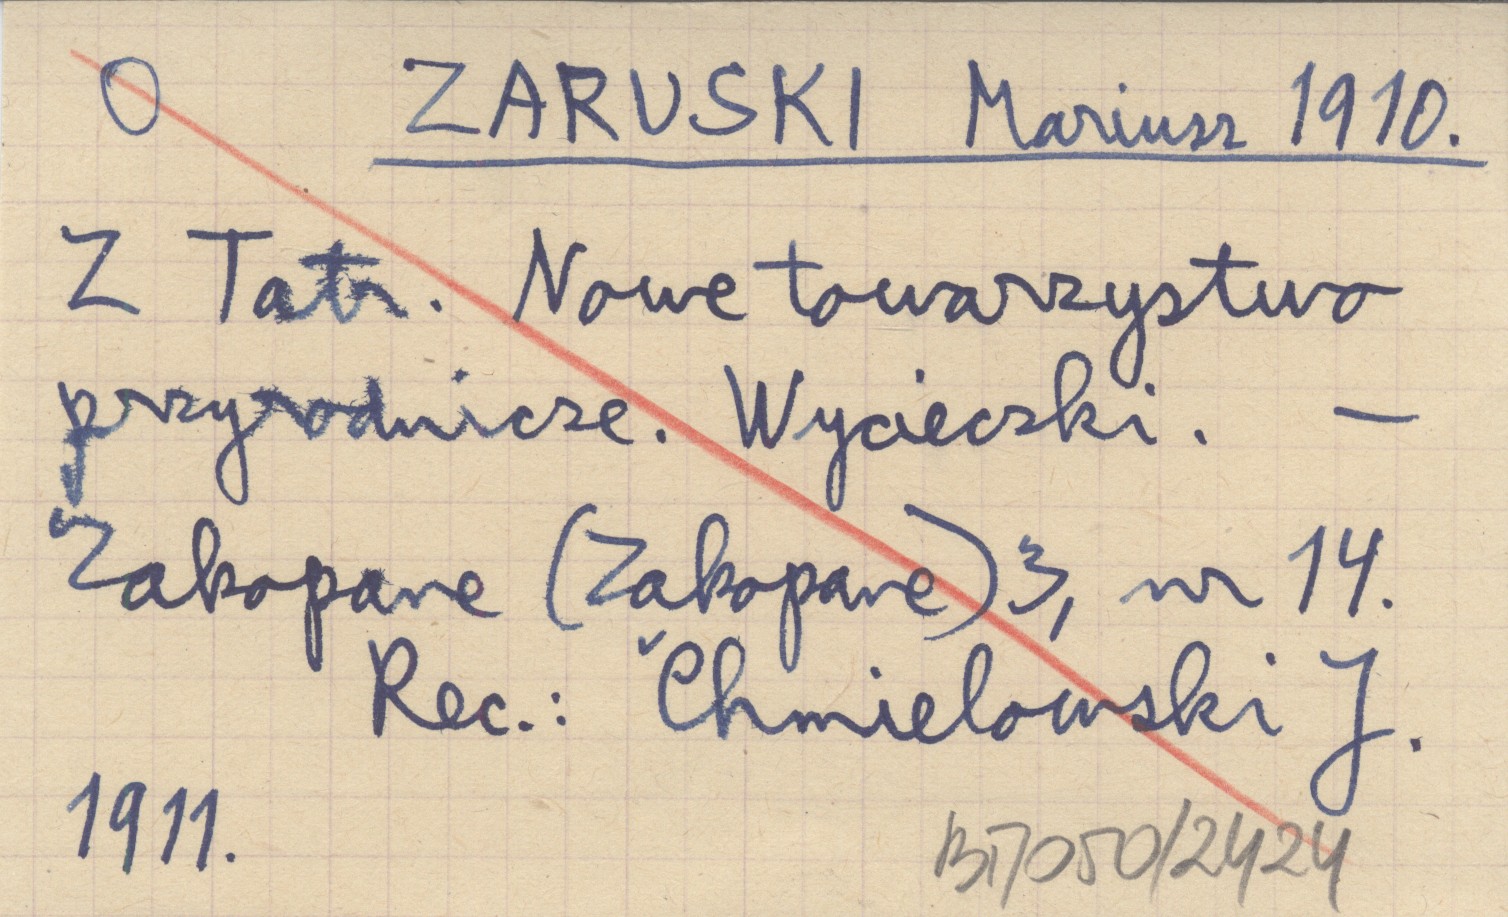 O ZARUSKI Mariusz 1910.
Z Tatr. Nowe towarzystwo
przyrodnicze. Wycieczki. —
Zakopane (Zakopane) 3, nr 14.
Rec.: Chmielowski J.
1911.
/2424